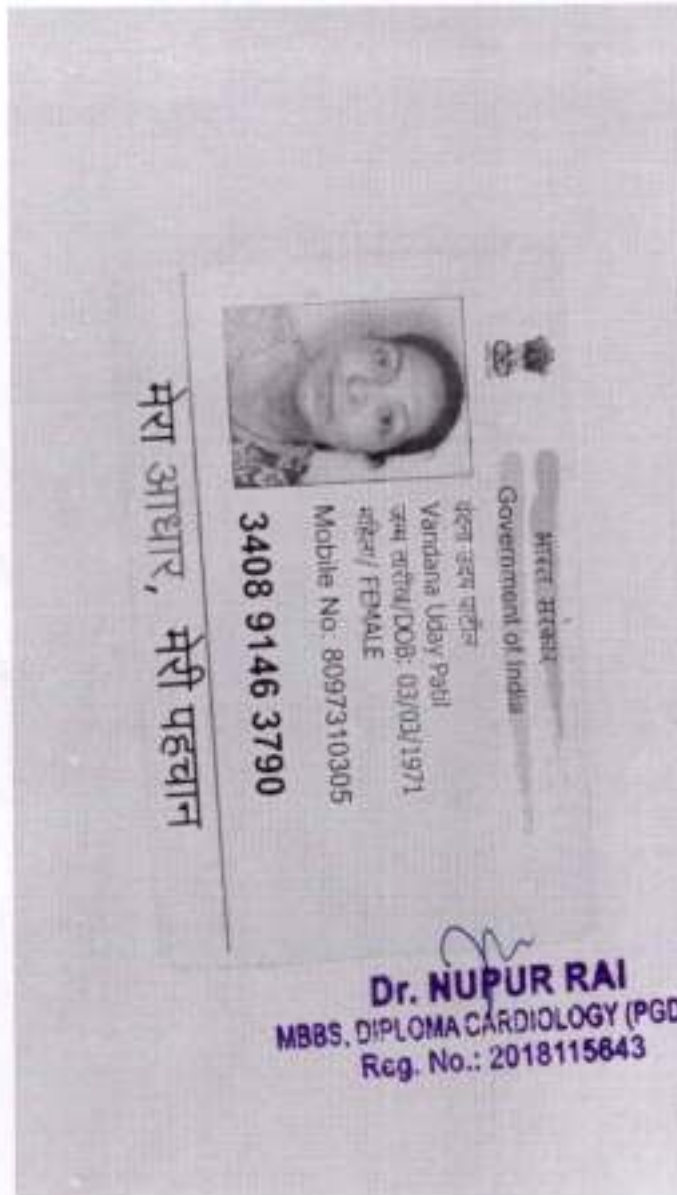 भारत सरकार
Government of India
वंदना उदय पाटील
Vandana Uday Patil
जन्म तारीख/DOB: 03/03/1971
महिला/ FEMALE
Mobile No: 8097310305
3408 9146 3790
मेरा आधार, मेरी पहचान
Dr. NUPUR RAI
MBBS, DIPLOMA CARDIOLOGY (PGD
Reg. No.: 2018115643